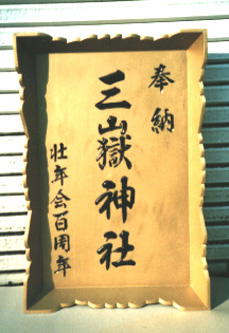 奉納
三嶽神社
壮年会百周年